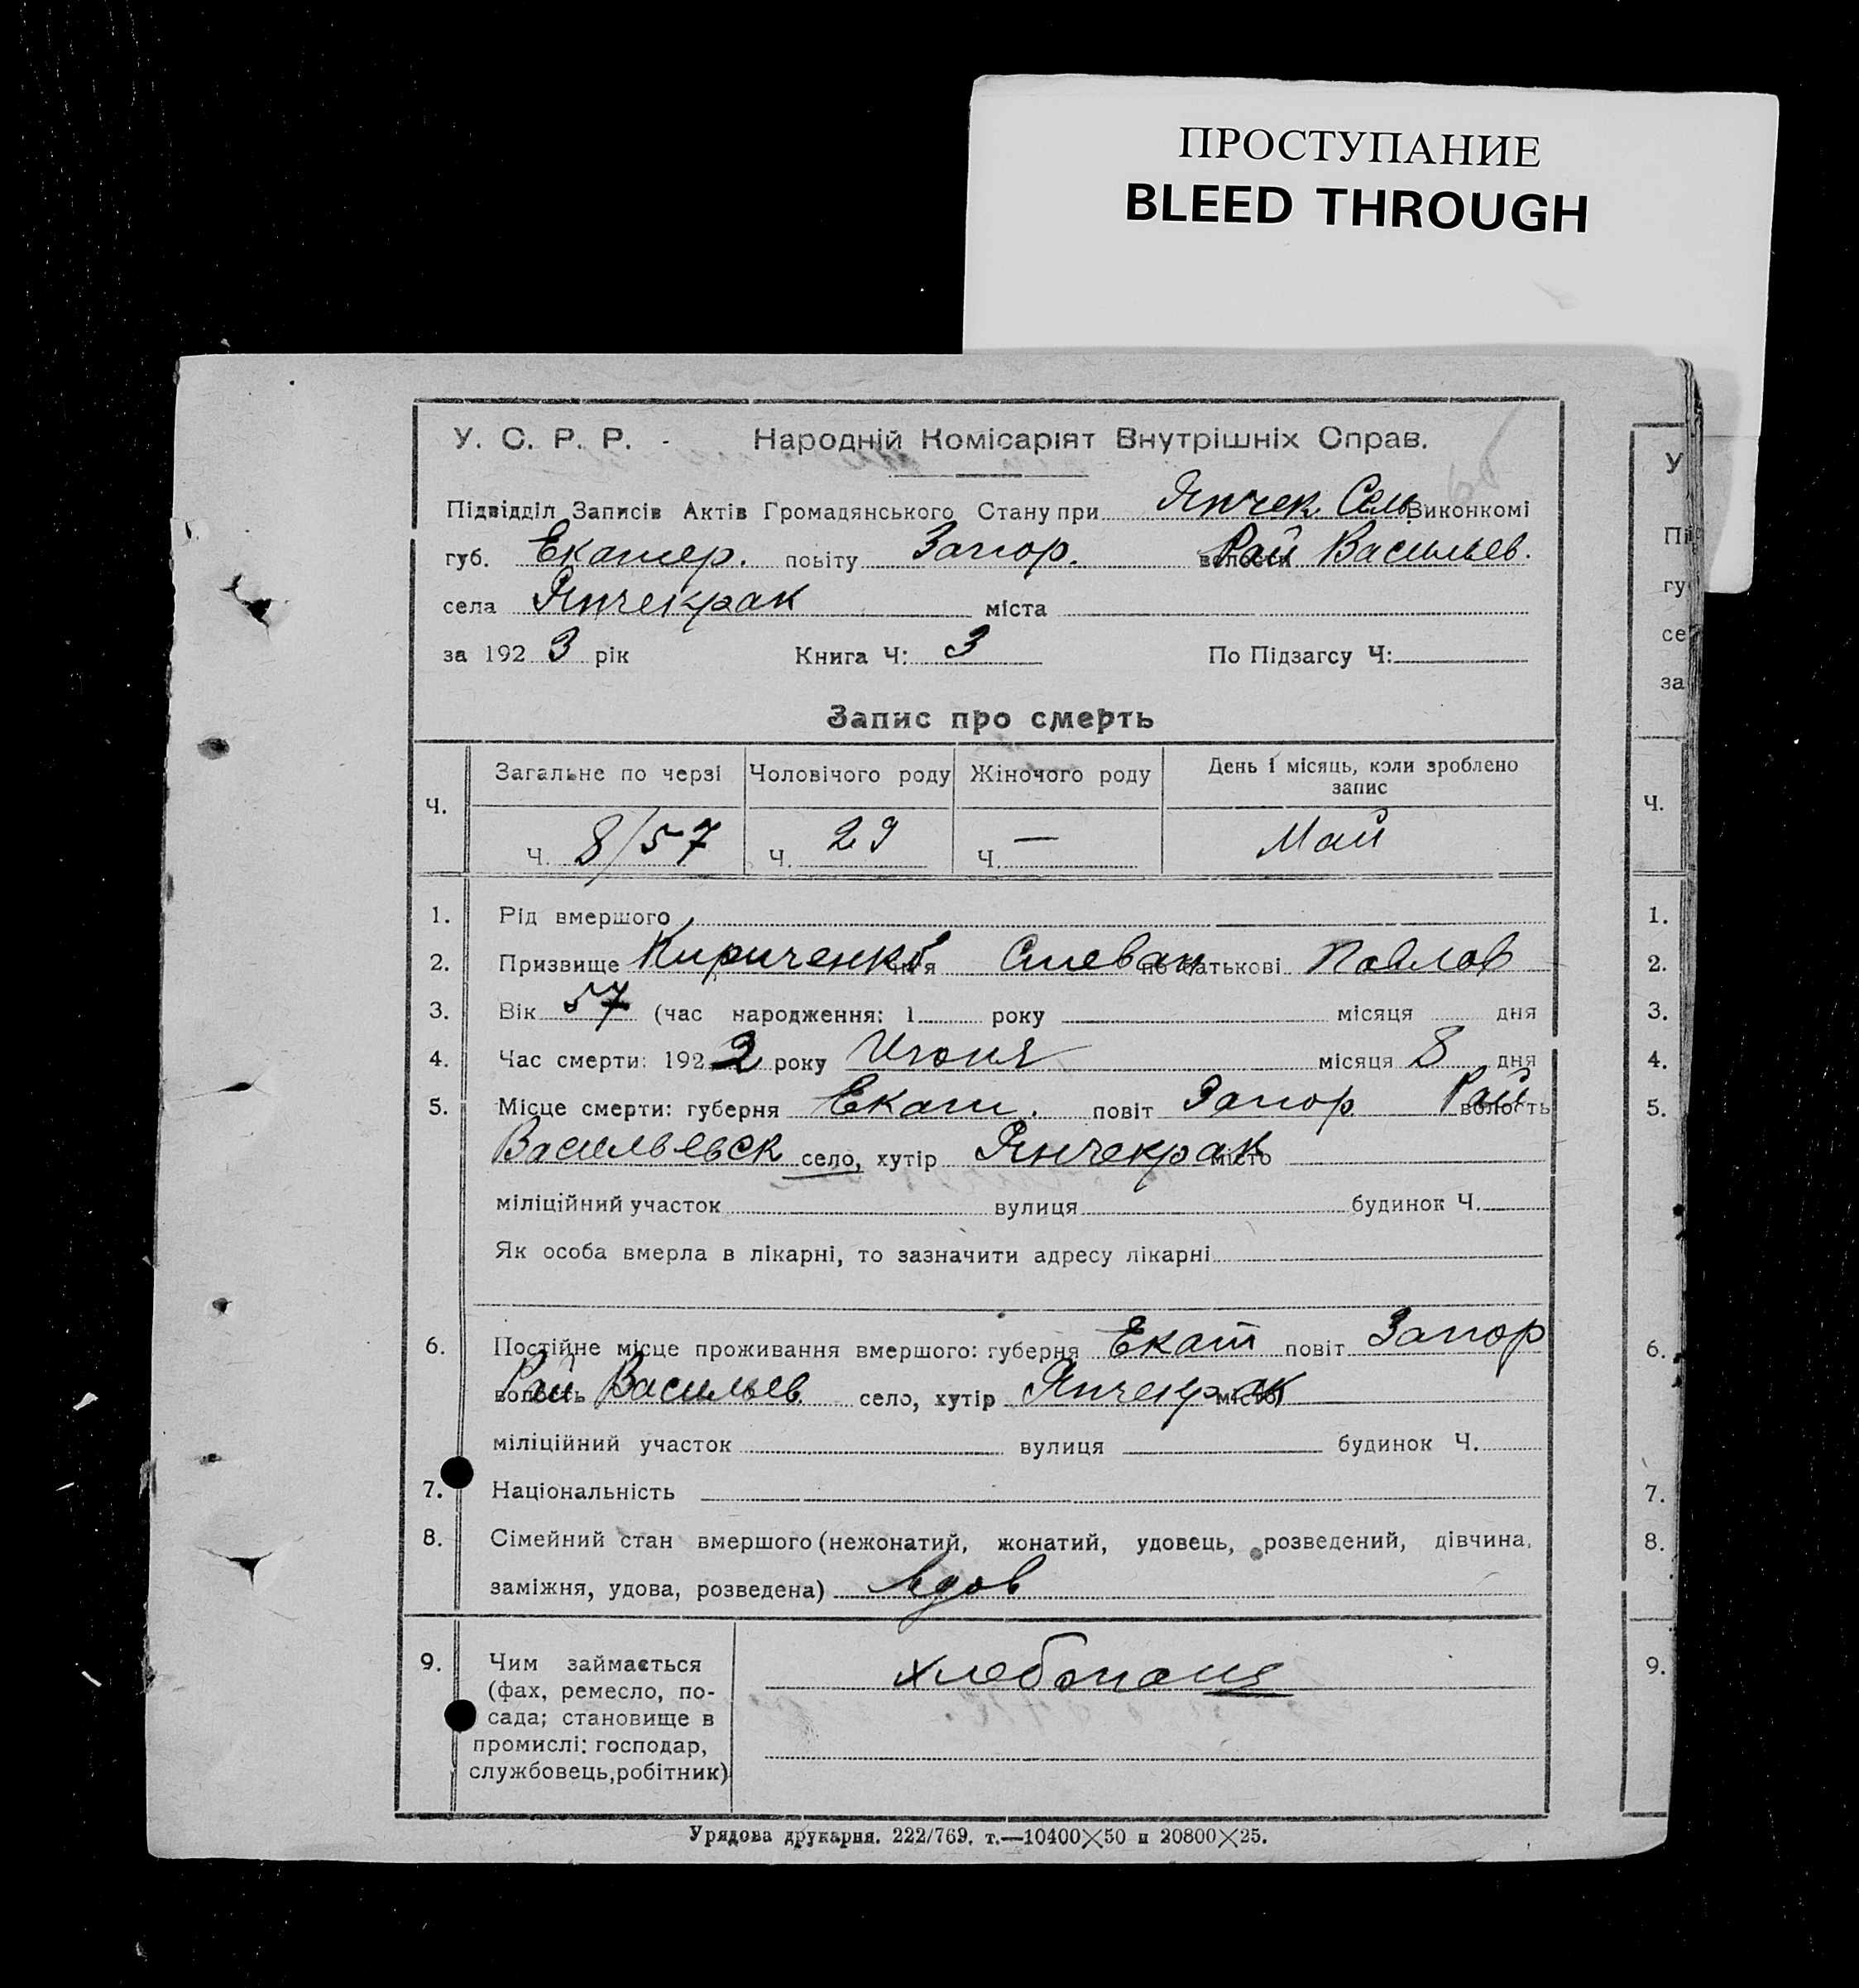 ПРОСТУПАНИЕ
BLEED THROUGH
У. С. Р. Р. - Народній Комісаріят Внутрішніх Справ.
Підвідділ Записів Актів Громадянського Стану при Янчек. Сель Виконкомі
губ. Екатер. повіту Запор. волости Рай Васильев.
села Янчекрак міста
за 1923 рік Книга Ч: 3 По Підзагсу Ч:
Запис про смерть
Ч. Загальне по черзі Чоловічого роду Жіночого роду День і місяць, коли зроблено запис
Ч. 8/57 Ч. 29 Ч. — Май
1. Рід вмершого
2. Призвище Кириченко ім'я Степан по батькові Павлов
3. Вік 57 (час народження: 1 року місяця дня
4. Час смерти: 1922 року Июня місяця 8 дня
5. Місце смерти: губерня Екат. повіт Запор Рай волость
Васильевск село, хутір Янчекрак місто
міліційний участок вулиця будинок Ч.
Як особа вмерла в лікарні, то зазначити адресу лікарні
6. Постійне місце проживання вмершого: губерня Екат повіт Запор
волость Рай Васильев. село, хутір Янчекрак місто
міліційний участок вулиця будинок Ч.
7. Національність
8. Сімейний стан вмершого (нежонатий, жонатий, удовець, розведений, дівчина,
заміжня, удова, розведена) вдов
9. Чим займається
(фах, ремесло, по-
сада; становище в
промислі: господар,
службовець, робітник)
Урядова друкарня. 222/769. т.—10400×50 и 20800×25.
У
Пі
гу
се
за
Ч.
1.
2.
3.
4.
5.
6.
7.
8.
9.